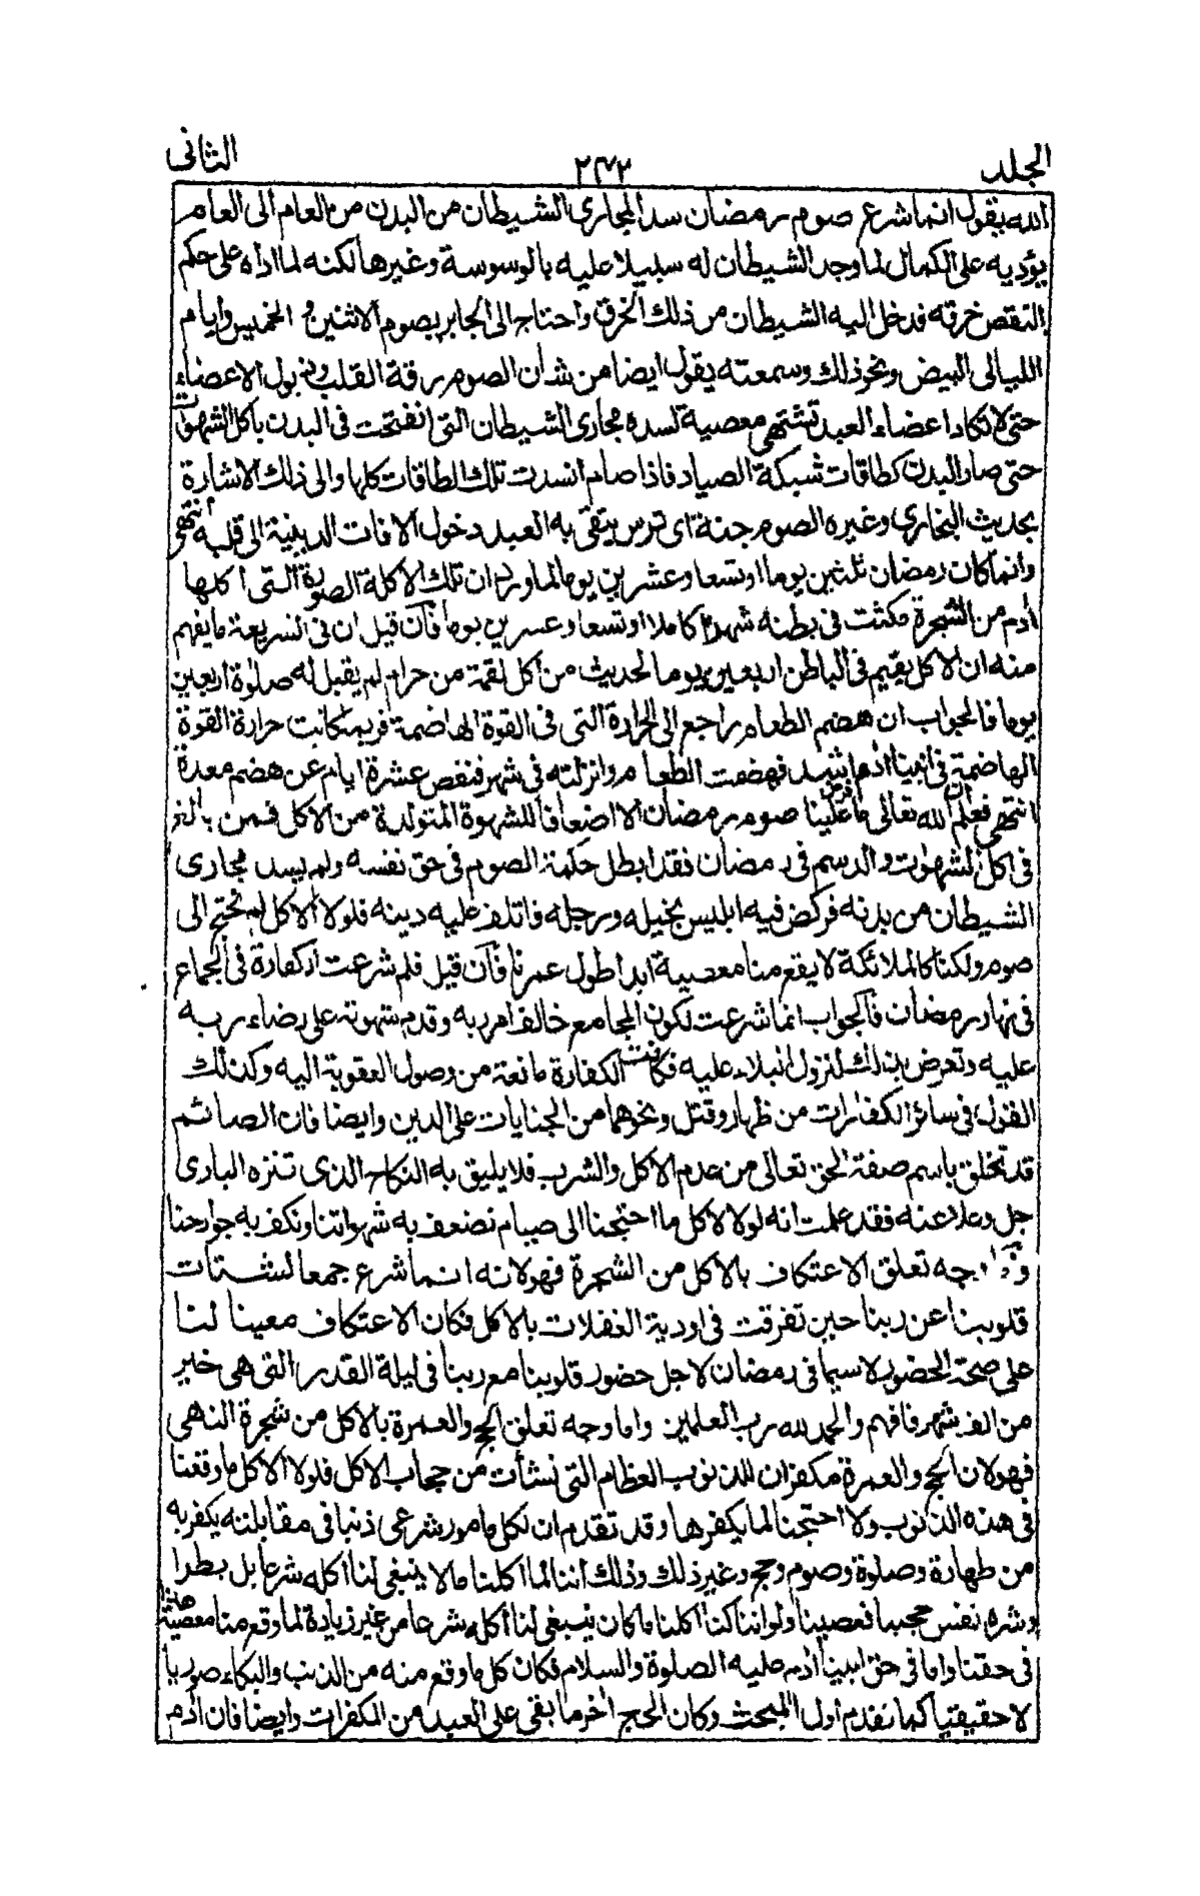 الجلد ٢٤٢ الثانى
الله يقول انما شرع صوم رمضان سدا لمجارى الشيطان من البدن من العام الى العام
يؤديه على الكمال لما وجد الشيطان له سبيلا عليه بالوسوسة وغيرها لكنه لما اداه على حكم
النقص خرقه فدخل اليه الشيطان من ذلك الخرق واحتاج الى الجابر بصوم الاثنين و الخميس وايام
الليالى البيض ونحو ذلك وسمعته يقول ايضا من شأن الصوم رقة القلب وذبول الاعضاء
حتى لا تكاد اعضاء العبد تشتهى معصية لسده مجارى الشيطان التى انفتحت فى البدن باكل الشهوات
حتى صار البدن كطاقات شبكة الصياد فاذا صام انسدت تلك الطاقات كلها والى ذلك الاشارة
بحديث البخارى وغيره الصوم جنة اى ترس يتقى به العبد دخول الافات الدينية الى قلبه انتهى
وانما كان رمضان ثلثين يوما او تسعا وعشرين يوما لما ورد ان تلك الاكلة الصورية التى اكلها
أدم من الشجرة مكثت فى بطنه شهرا كاملا او تسعا وعشرين يوما فأن قيل ان فى الشريعة ما يفهم
منه ان الاكل يقيم فى الباطن اربعين يوما لحديث من اكل لقمة من حرام لم يقبل له صلوة اربعين
يوما فالجواب ان هضم الطعام راجع الى الحرارة التى فى القوة الهاضمة فربما كانت حرارة القوة
الهاضمة فى ابينا أدم اشد فهضمت الطعام وانزلته فى شهر فنقص عشرة ايام عن هضم معدة
انتهى فعلم ان الله تعالى ما فرض علينا صوم رمضان الا اضعافا للشهوة المتولدة من الاكل فمن بالغ
فى اكل الشهوات والدسم فى رمضان فقد ابطل حكمة الصوم فى حق نفسه ولم يسد مجارى
الشيطان من بدنه فركض فيه ابليس بخيله ورجله فاتلف عليه دينه فلولا الاكل لم نحتج الى
صوم ولكنا كالملائكة لا يقع منا معصية ابدا طول عمرنا فأن قيل فلم شرعت الكفارة فى الجماع
فى نهار رمضان فالجواب انما شرعت لكون المجامع خالف امر ربه وقدم شهوته على رضاء ربه
عليه وتعرض بذلك لنزول البلاء عليه فكانت الكفارة مانعة من وصول العقوبة اليه وكذلك
القول فى سائر الكفارات من ظهار وقتل ونحوهما من الجنايات على الدين وايضا فان الصائم
قد تخلق باسم صفة الحق تعالى من عدم الاكل والشرب فلا يليق به النكاح الذى تنزه البارى
جل وعلا عنه فقد علمت انه لولا الاكل ما احتجنا الى صيام نضعف به شهواتنا ونكف به جوارحنا
واما وجه تعلق الاعتكاف بالاكل من الشجرة فهو لانه انما شرع جمعا لشتات
قلوبنا عن ربنا حين تفرقت فى اودية الغفلات بالاكل فكان الاعتكاف معينا لنا
على صحة الحضور لا سيما فى رمضان لاجل حضور قلوبنا مع ربنا فى ليلة القدر التى هى خير
من الف شهر فافهم والحمد لله رب العلمين واما وجه تعلق الحج والعمرة بالاكل من شجرة النهى
فهو لان الحج والعمرة مكفران للذنوب العظام التى نشأت من حجاب الاكل فلولا الاكل ما وقعنا
فى هذه الذنوب ولا احتجنا لما يكفرها وقد تقدم ان لكل مامور شرعى ذنبا فى مقابلته يكفر به
من طهارة وصلوة وصوم وحج وغير ذلك وذلك أننا لما اكلنا ما لا ينبغى لنا اكله شرعا بل بطرا
وشره نفس حجبنا فعصينا ولو اننا كنا اكلنا ما كان ينبغى لنا اكله شرعا من غير زيادة لما وقع منا معصية هذا
فى حقنا واما فى حق ابينا أدم عليه الصلوة والسلام فكان كل ما وقع منه من الذنب والبكاء صوريا
لا حقيقيا كما تقدم اول المبحث وكان الحج أخر ما بقى على العبد من المكفرات وايضا فان أدم